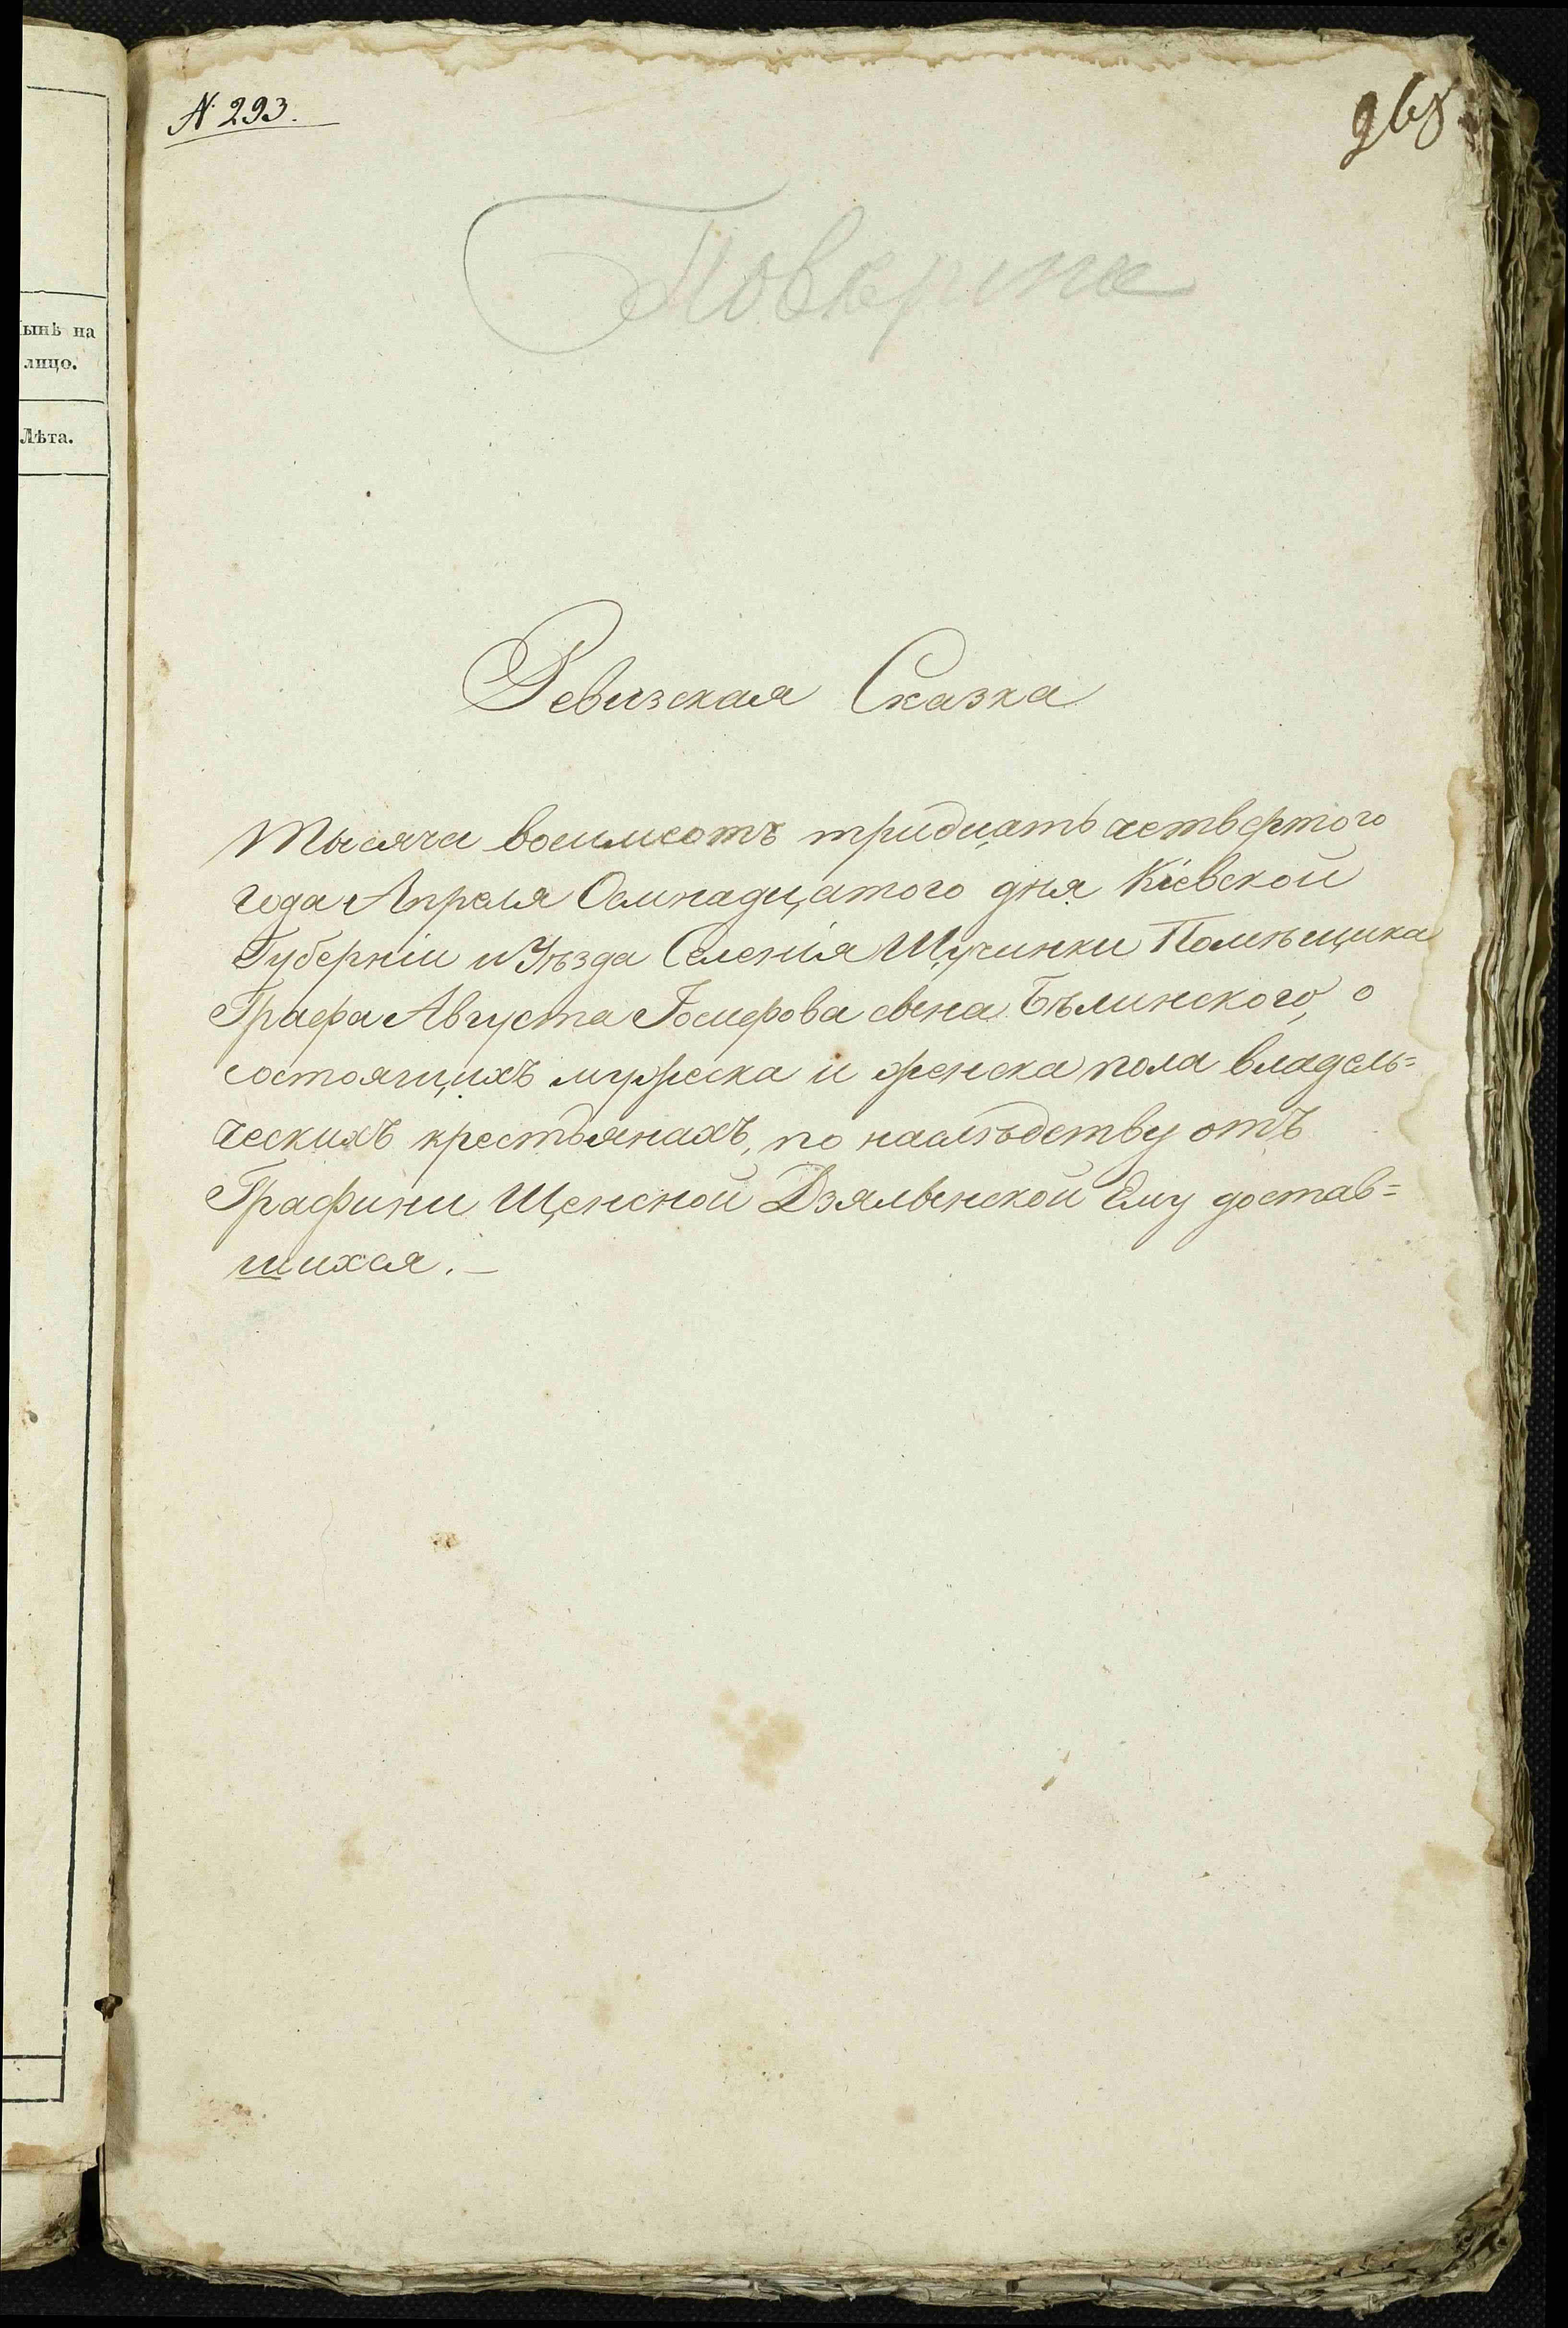 ынѣ на
лицо.
Лѣта.
N. 293.
968
Повѣрина
Ревизская Сказка
Тысяча восимсотъ тридцать четвертого
года Апреля Осмнадцатого дня Кіевской
Губерніи и Уѣзда Селенія Щучинки Помѣщика
Графа Августа Іосифова сына Бѣлинского, о
состоящихъ мужеска и женска пола владель=
ческихъ крестьянахъ, по наслѣдству отъ
Графини Щенсной Дзялынской Ему достав=
шихся. —